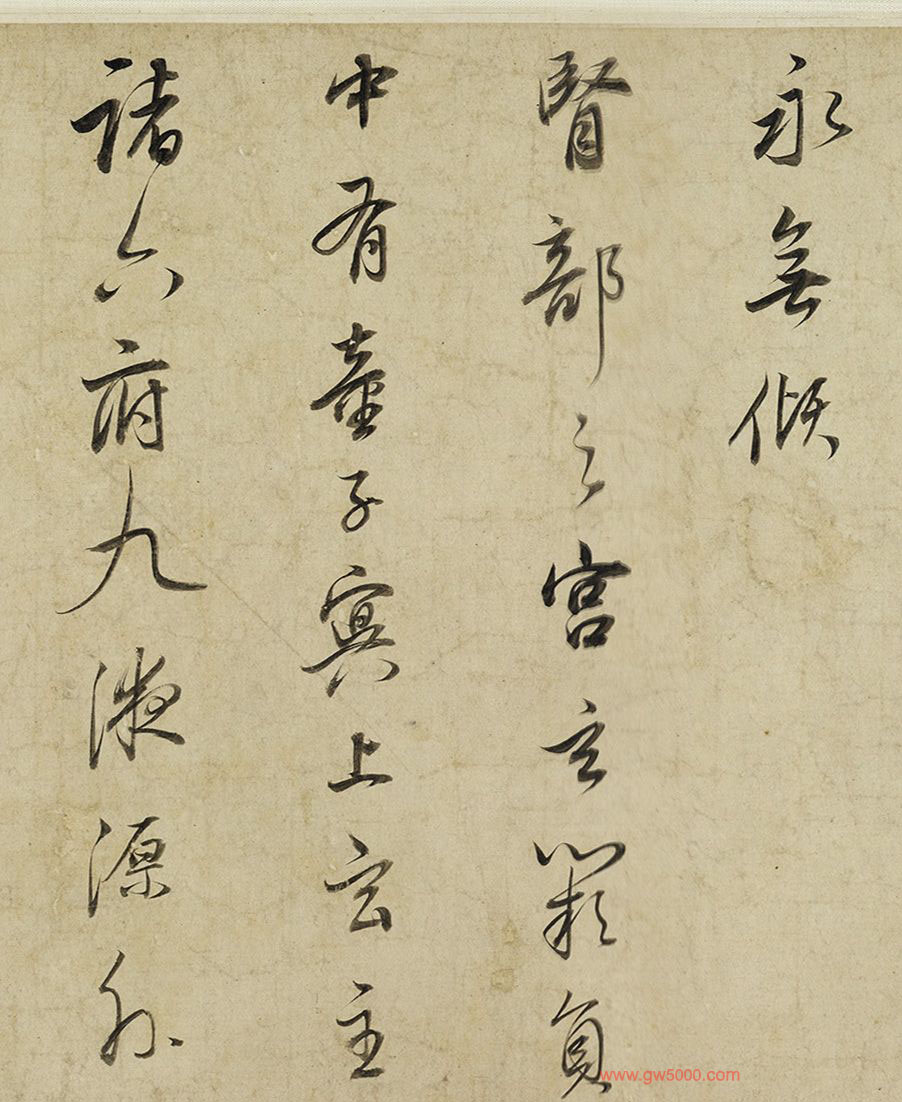 永無傾
腎部之宮玄闕員
中有童子冥上玄主
諸六府九液源外
www.gw5000.com